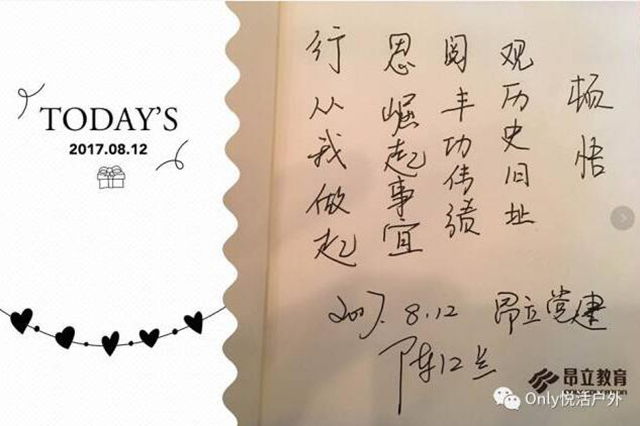 TODAY'S
2017.08.12
顿悟
观历史旧址
阅丰功伟绩
思崛起事宜
行从我做起
2017.8.12 昂立党建
昂立教育
Only悦活户外